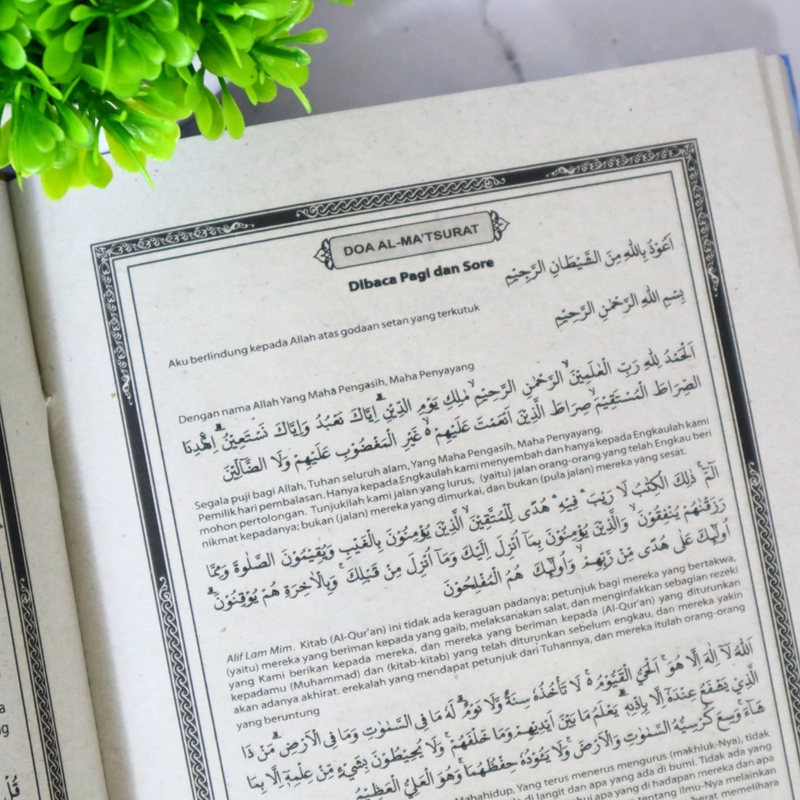 DOA AL-MA'TSURAT
Dibaca Pagi dan Sore
اَعُوْذُ بِاللهِ مِنَ الشَّيْطَانِ الرَّجِيْمِ
Aku berlindung kepada Allah atas godaan setan yang terkutuk
بِسْمِ اللهِ الرَّحْمٰنِ الرَّحِيْمِ
Dengan nama Allah Yang Maha Pengasih, Maha Penyayang
اَلْحَمْدُ لِلّٰهِ رَبِّ الْعٰلَمِيْنَۙ الرَّحْمٰنِ الرَّحِيْمِۙ مٰلِكِ يَوْمِ الدِّيْنِۗ اِيَّاكَ نَعْبُدُ وَاِيَّاكَ نَسْتَعِيْنُۗ اِهْدِنَا
الصِّرَاطَ الْمُسْتَقِيْمَۙ صِرَاطَ الَّذِيْنَ اَنْعَمْتَ عَلَيْهِمْ ۙ غَيْرِ الْمَغْضُوْبِ عَلَيْهِمْ وَلَا الضَّاۤلِّيْنَ
Segala puji bagi Allah, Tuhan seluruh alam, Yang Maha Pengasih, Maha Penyayang,
Pemilik hari pembalasan. Hanya kepada Engkaulah kami menyembah dan hanya kepada Engkaulah kami
mohon pertolongan. Tunjukilah kami jalan yang lurus, (yaitu) jalan orang-orang yang telah Engkau beri
nikmat kepadanya; bukan (jalan) mereka yang dimurkai, dan bukan (pula jalan) mereka yang sesat.
الۤمّۤ ۚ ذٰلِكَ الْكِتٰبُ لَا رَيْبَ ۛ فِيْهِ ۛ هُدًى لِّلْمُتَّقِيْنَۙ الَّذِيْنَ يُؤْمِنُوْنَ بِالْغَيْبِ وَيُقِيْمُوْنَ الصَّلٰوةَ وَمِمَّا
رَزَقْنٰهُمْ يُنْفِقُوْنَ ۙ وَالَّذِيْنَ يُؤْمِنُوْنَ بِمَآ اُنْزِلَ اِلَيْكَ وَمَآ اُنْزِلَ مِنْ قَبْلِكَ ۚ وَبِالْاٰخِرَةِ هُمْ يُوْقِنُوْنَۗ
اُولٰۤىِٕكَ عَلٰى هُدًى مِّنْ رَّبِّهِمْ ۙ وَاُولٰۤىِٕكَ هُمُ الْمُفْلِحُوْنَ
Alif Lam Mim. Kitab (Al-Qur'an) ini tidak ada keraguan padanya; petunjuk bagi mereka yang bertakwa,
(yaitu) mereka yang beriman kepada yang gaib, melaksanakan salat, dan menginfakkan sebagian rezeki
yang Kami berikan kepada mereka, dan mereka yang beriman kepada (Al-Qur'an) yang diturunkan
kepadamu (Muhammad) dan (kitab-kitab) yang telah diturunkan sebelum engkau, dan mereka yakin
akan adanya akhirat. erekalah yang mendapat petunjuk dari Tuhannya, dan mereka itulah orang-orang
yang beruntung
اَللّٰهُ لَآ اِلٰهَ اِلَّا هُوَۚ اَلْحَيُّ الْقَيُّوْمُ ەۚ لَا تَأْخُذُهٗ سِنَةٌ وَّلَا نَوْمٌۗ لَهٗ مَا فِى السَّمٰوٰتِ وَمَا فِى الْاَرْضِۗ مَنْ ذَا
الَّذِيْ يَشْفَعُ عِنْدَهٗٓ اِلَّا بِاِذْنِهٖۗ يَعْلَمُ مَا بَيْنَ اَيْدِيْهِمْ وَمَا خَلْفَهُمْۚ وَلَا يُحِيْطُوْنَ بِشَيْءٍ مِّنْ عِلْمِهٖٓ اِلَّا بِمَا
شَاۤءَۚ وَسِعَ كُرْسِيُّهُ السَّمٰوٰتِ وَالْاَرْضَۚ وَلَا يَـُٔوْدُهٗ حِفْظُهُمَاۚ وَهُوَ الْعَلِيُّ الْعَظِيْمُ
Mahahidup, Yang terus menerus mengurus (makhluk-Nya), tidak
di langit dan apa yang ada di bumi. Tidak ada yang
apa yang di hadapan mereka dan apa
tentang ilmu-Nya melainkan
berat memelihara